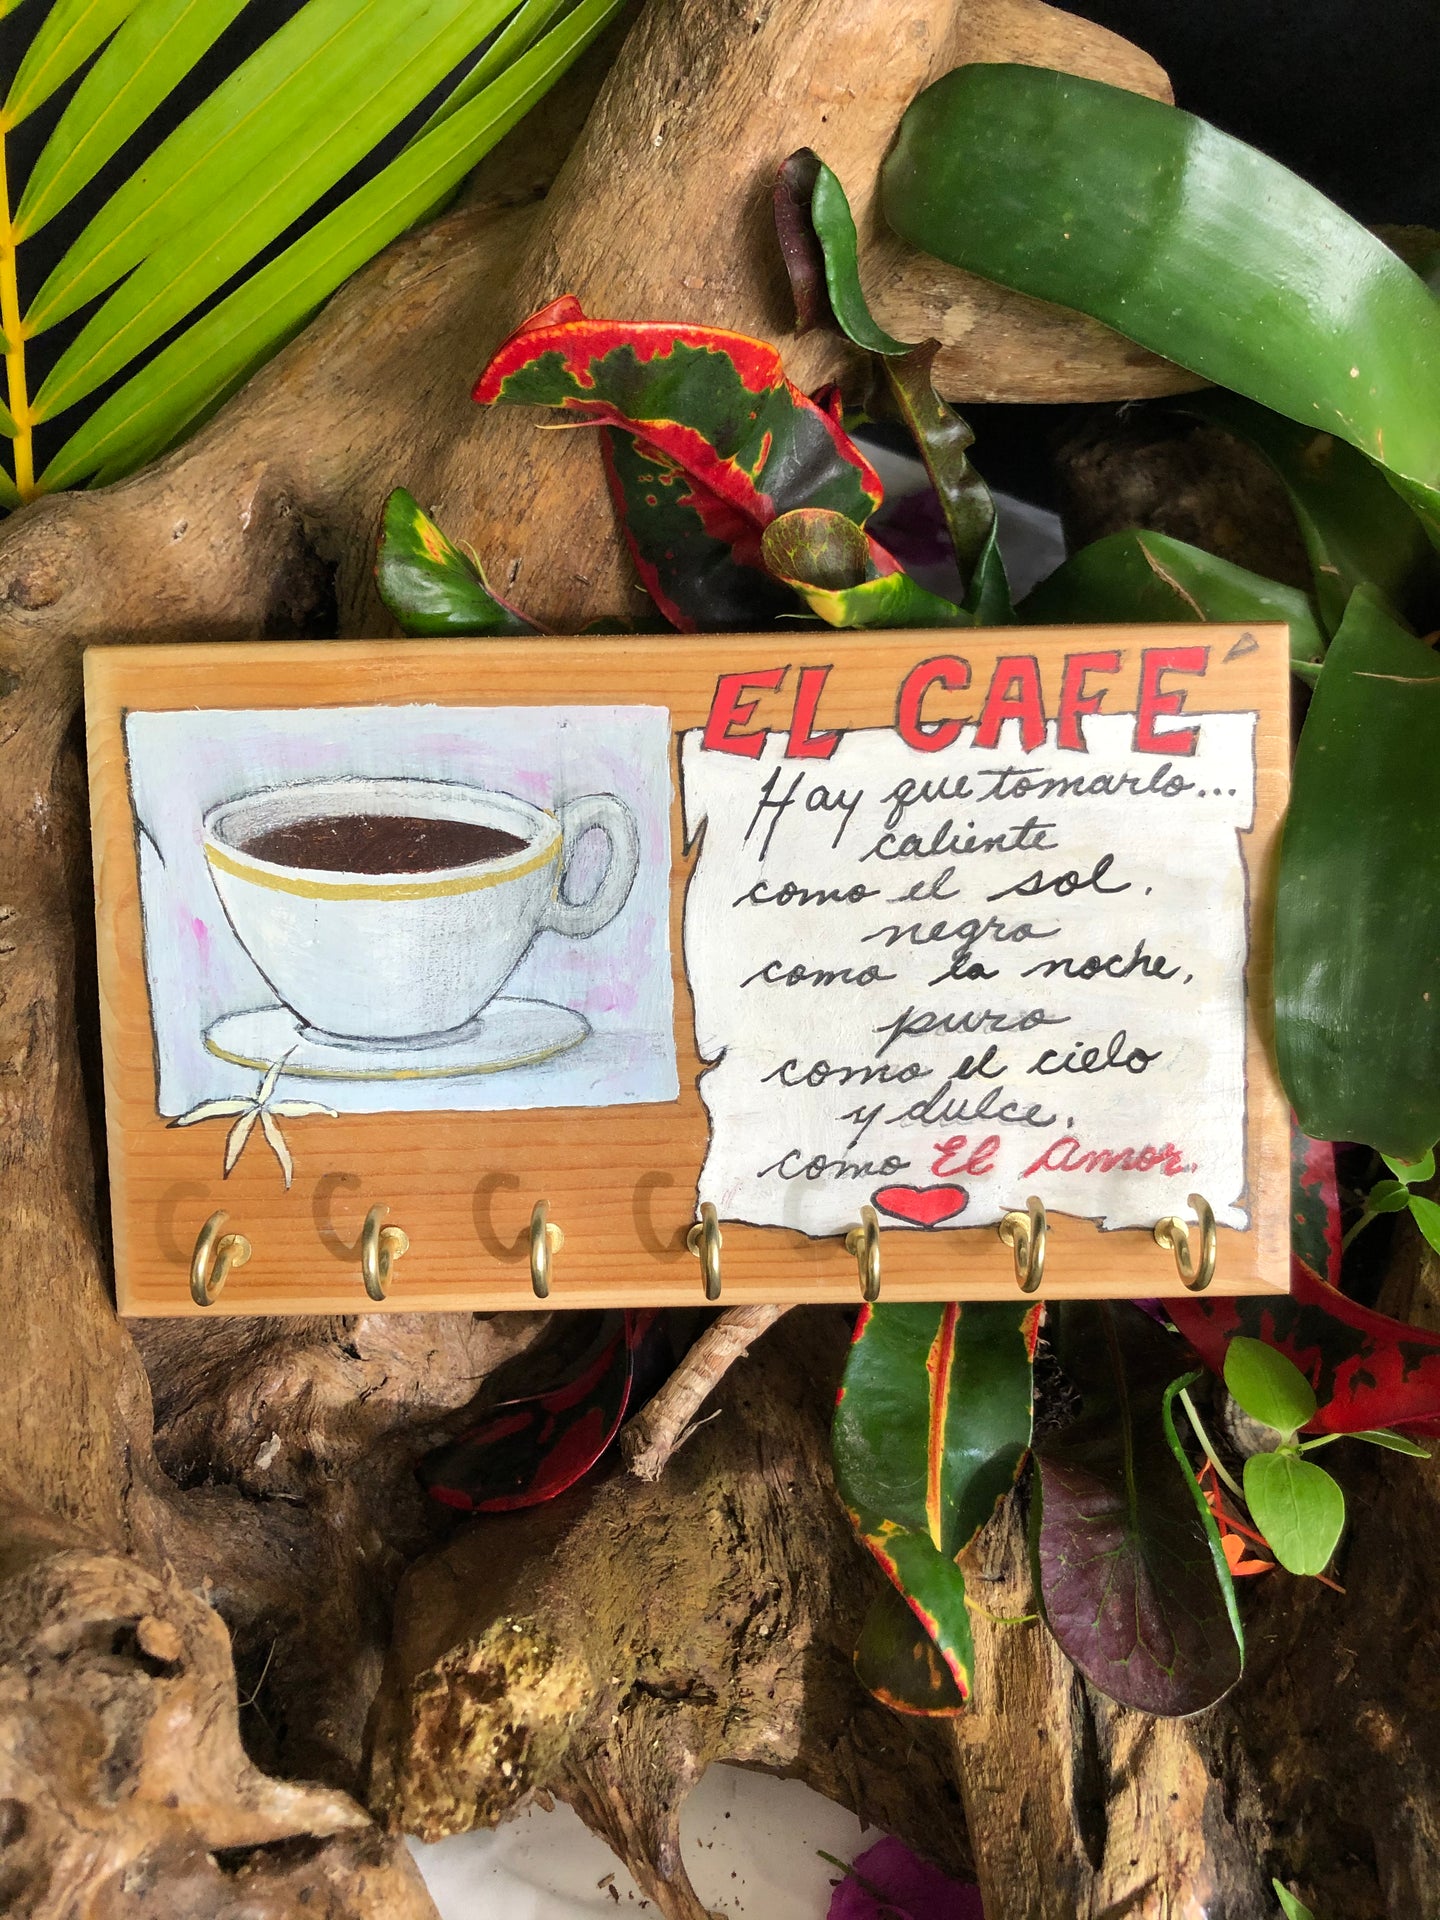 EL CAFE´
Hay que tomarlo...
caliente
como el sol.
negro
como la noche,
puro
como el cielo
y dulce,
como El Amor.